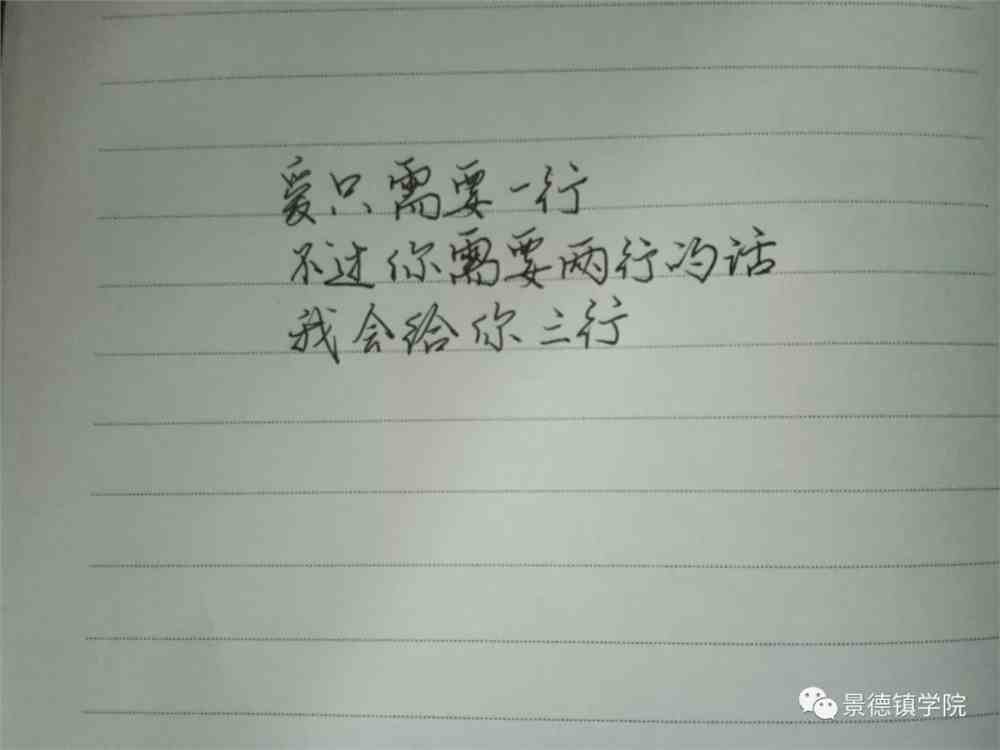 爱只需要一行
不过你需要两行的话
我会给你三行
景德镇学院